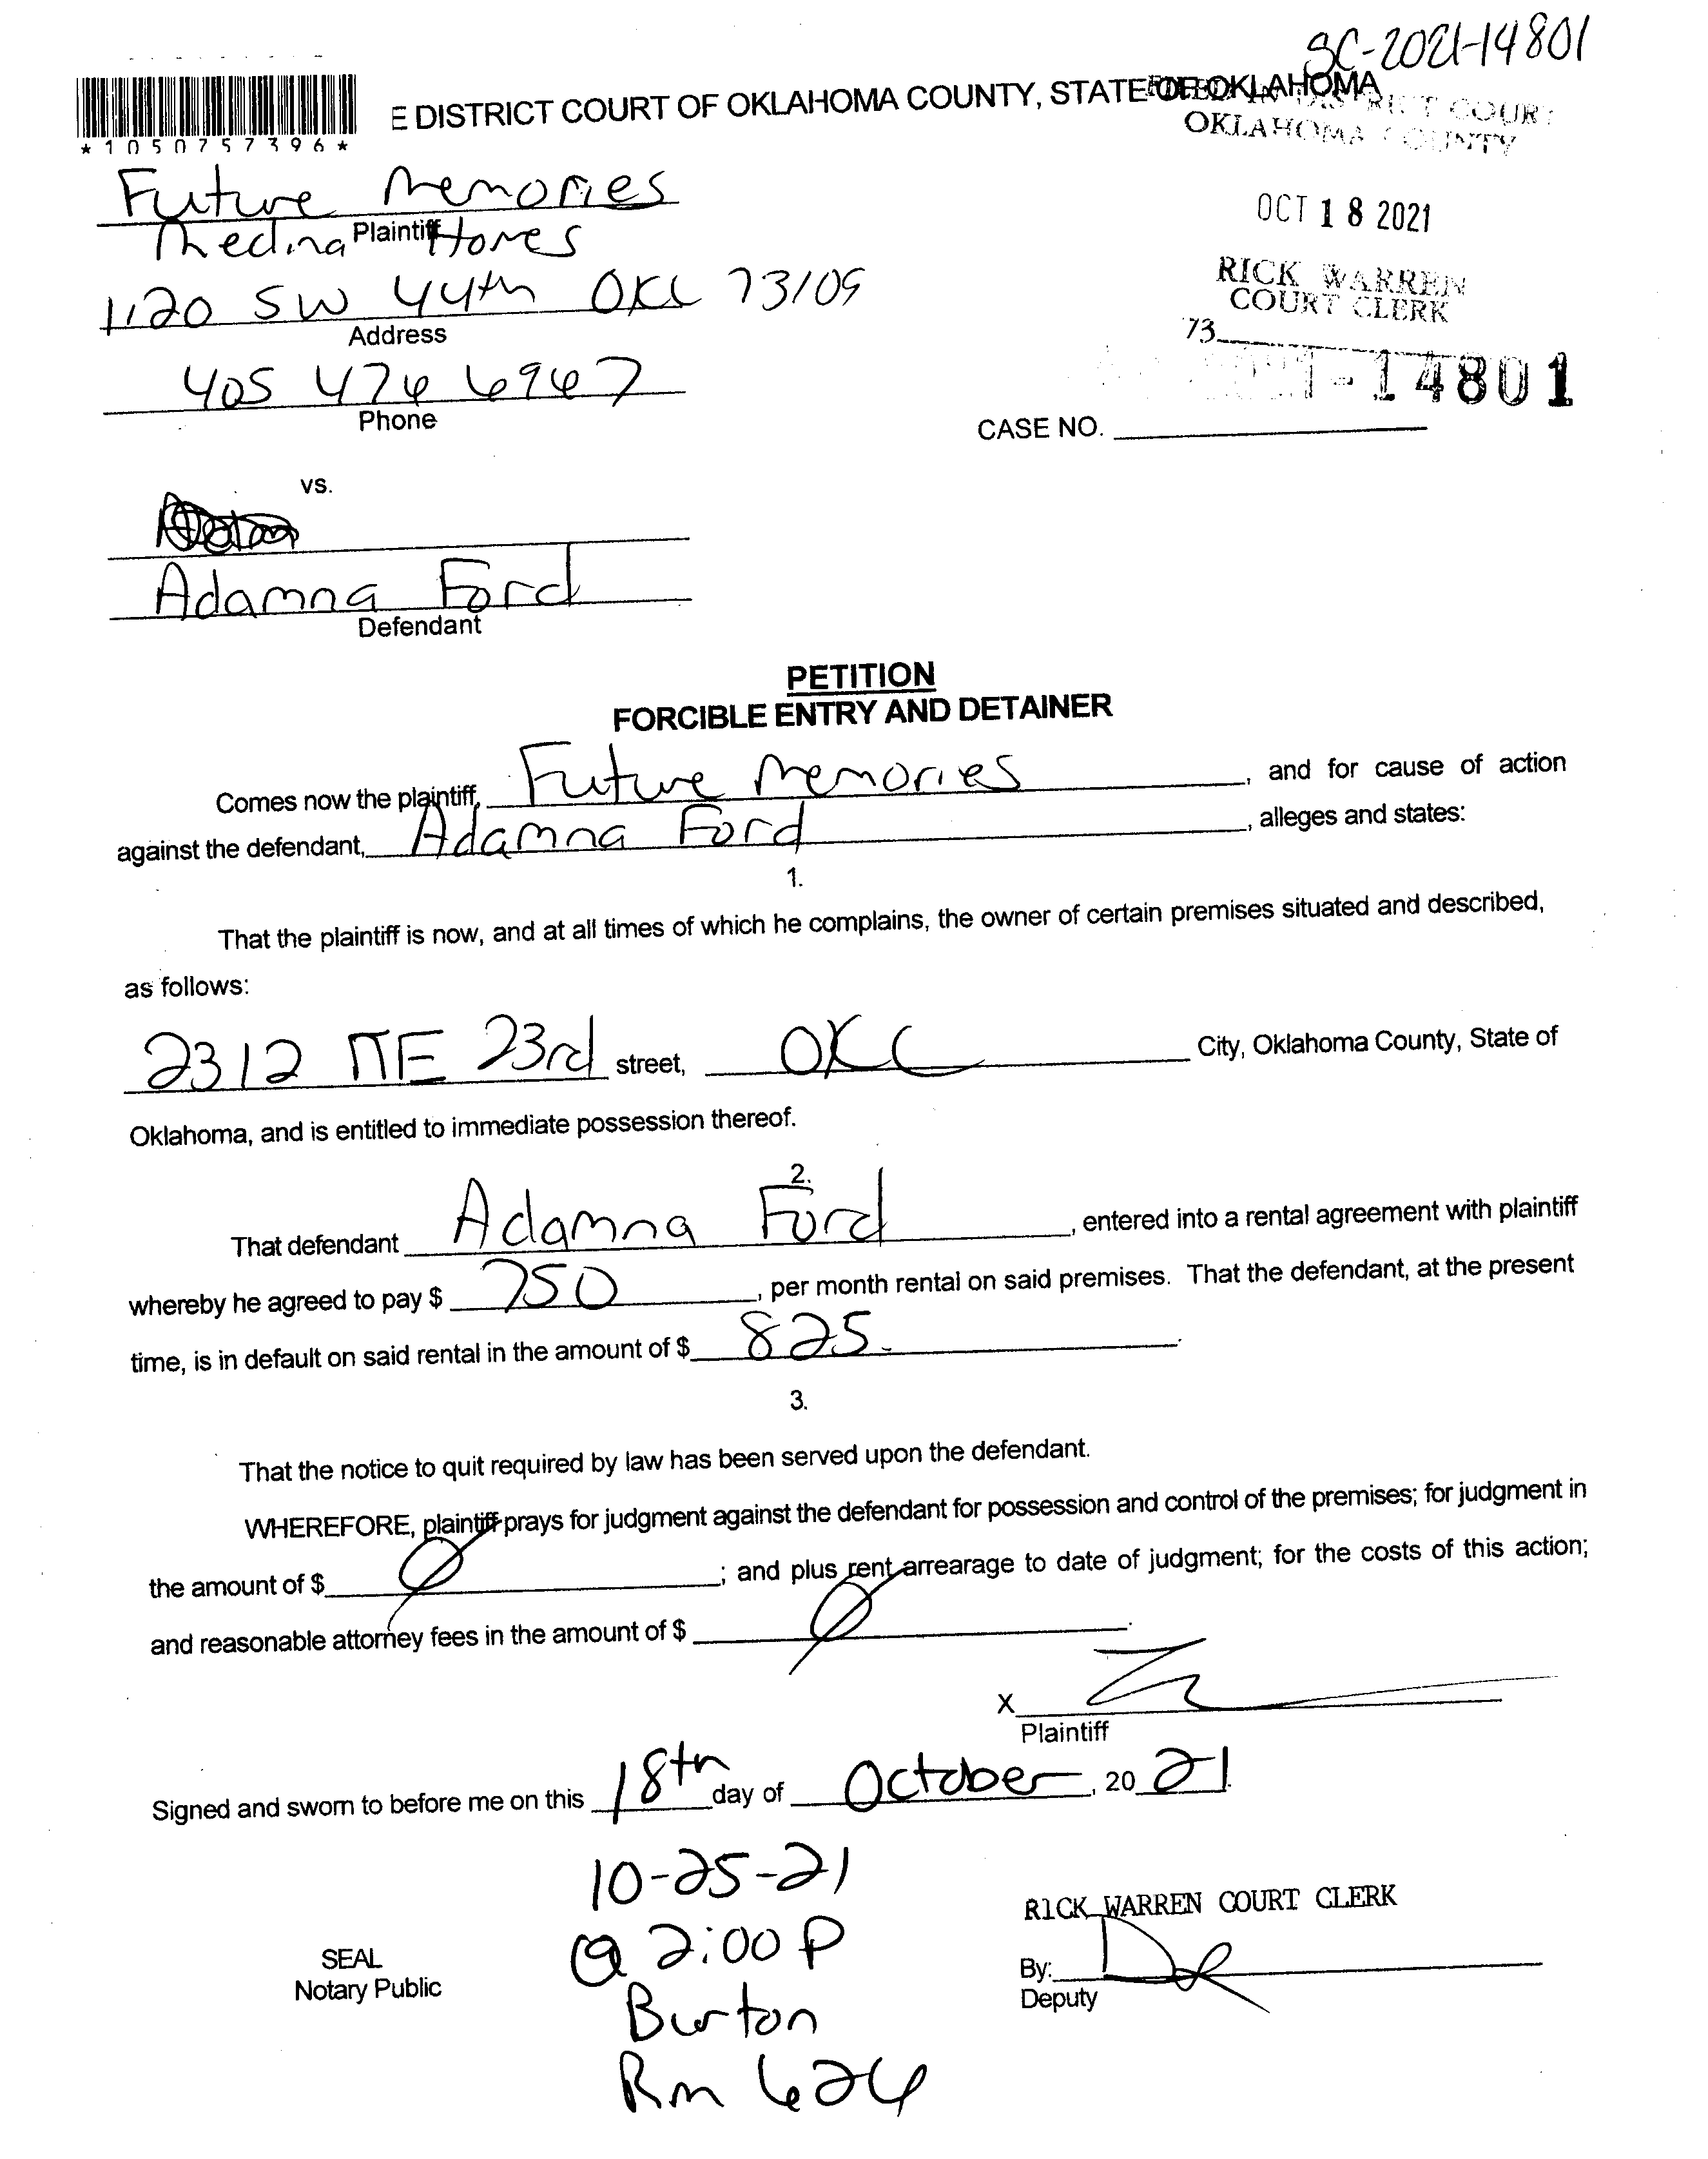 SC-2021-14801
E DISTRICT COURT OF OKLAHOMA COUNTY, STATE OF OKLAHOMA
FILED IN DISTRICT COURT
OKLAHOMA COUNTY
*1050757396*
Future Memories
Plaintiff
Medina Homes
OCT 18 2021
1120 SW 44th OKC 73109
Address
RICK WARREN
COURT CLERK
73
405 476 6967
Phone
-14801
CASE NO.
vs.
Adamna Ford
Defendant
PETITION
FORCIBLE ENTRY AND DETAINER
Comes now the plaintiff, Future Memories, and for cause of action
against the defendant, Adamna Ford, alleges and states:
1.
That the plaintiff is now, and at all times of which he complains, the owner of certain premises situated and described,
as follows:
2312 NE 23rd street, OKC City, Oklahoma County, State of
Oklahoma, and is entitled to immediate possession thereof.
2.
That defendant Adamna Ford, entered into a rental agreement with plaintiff
whereby he agreed to pay $ 750, per month rental on said premises. That the defendant, at the present
time, is in default on said rental in the amount of $ 825.
3.
That the notice to quit required by law has been served upon the defendant.
WHEREFORE, plaintiff prays for judgment against the defendant for possession and control of the premises; for judgment in
the amount of $ Ø; and plus rent arrearage to date of judgment; for the costs of this action;
and reasonable attorney fees in the amount of $ Ø.
X
Plaintiff
Signed and sworn to before me on this 18th day of October, 20 21.
10-25-21
@ 2:00 P
Burton
Rm 626
RICK WARREN COURT CLERK
SEAL
Notary Public
By:
Deputy